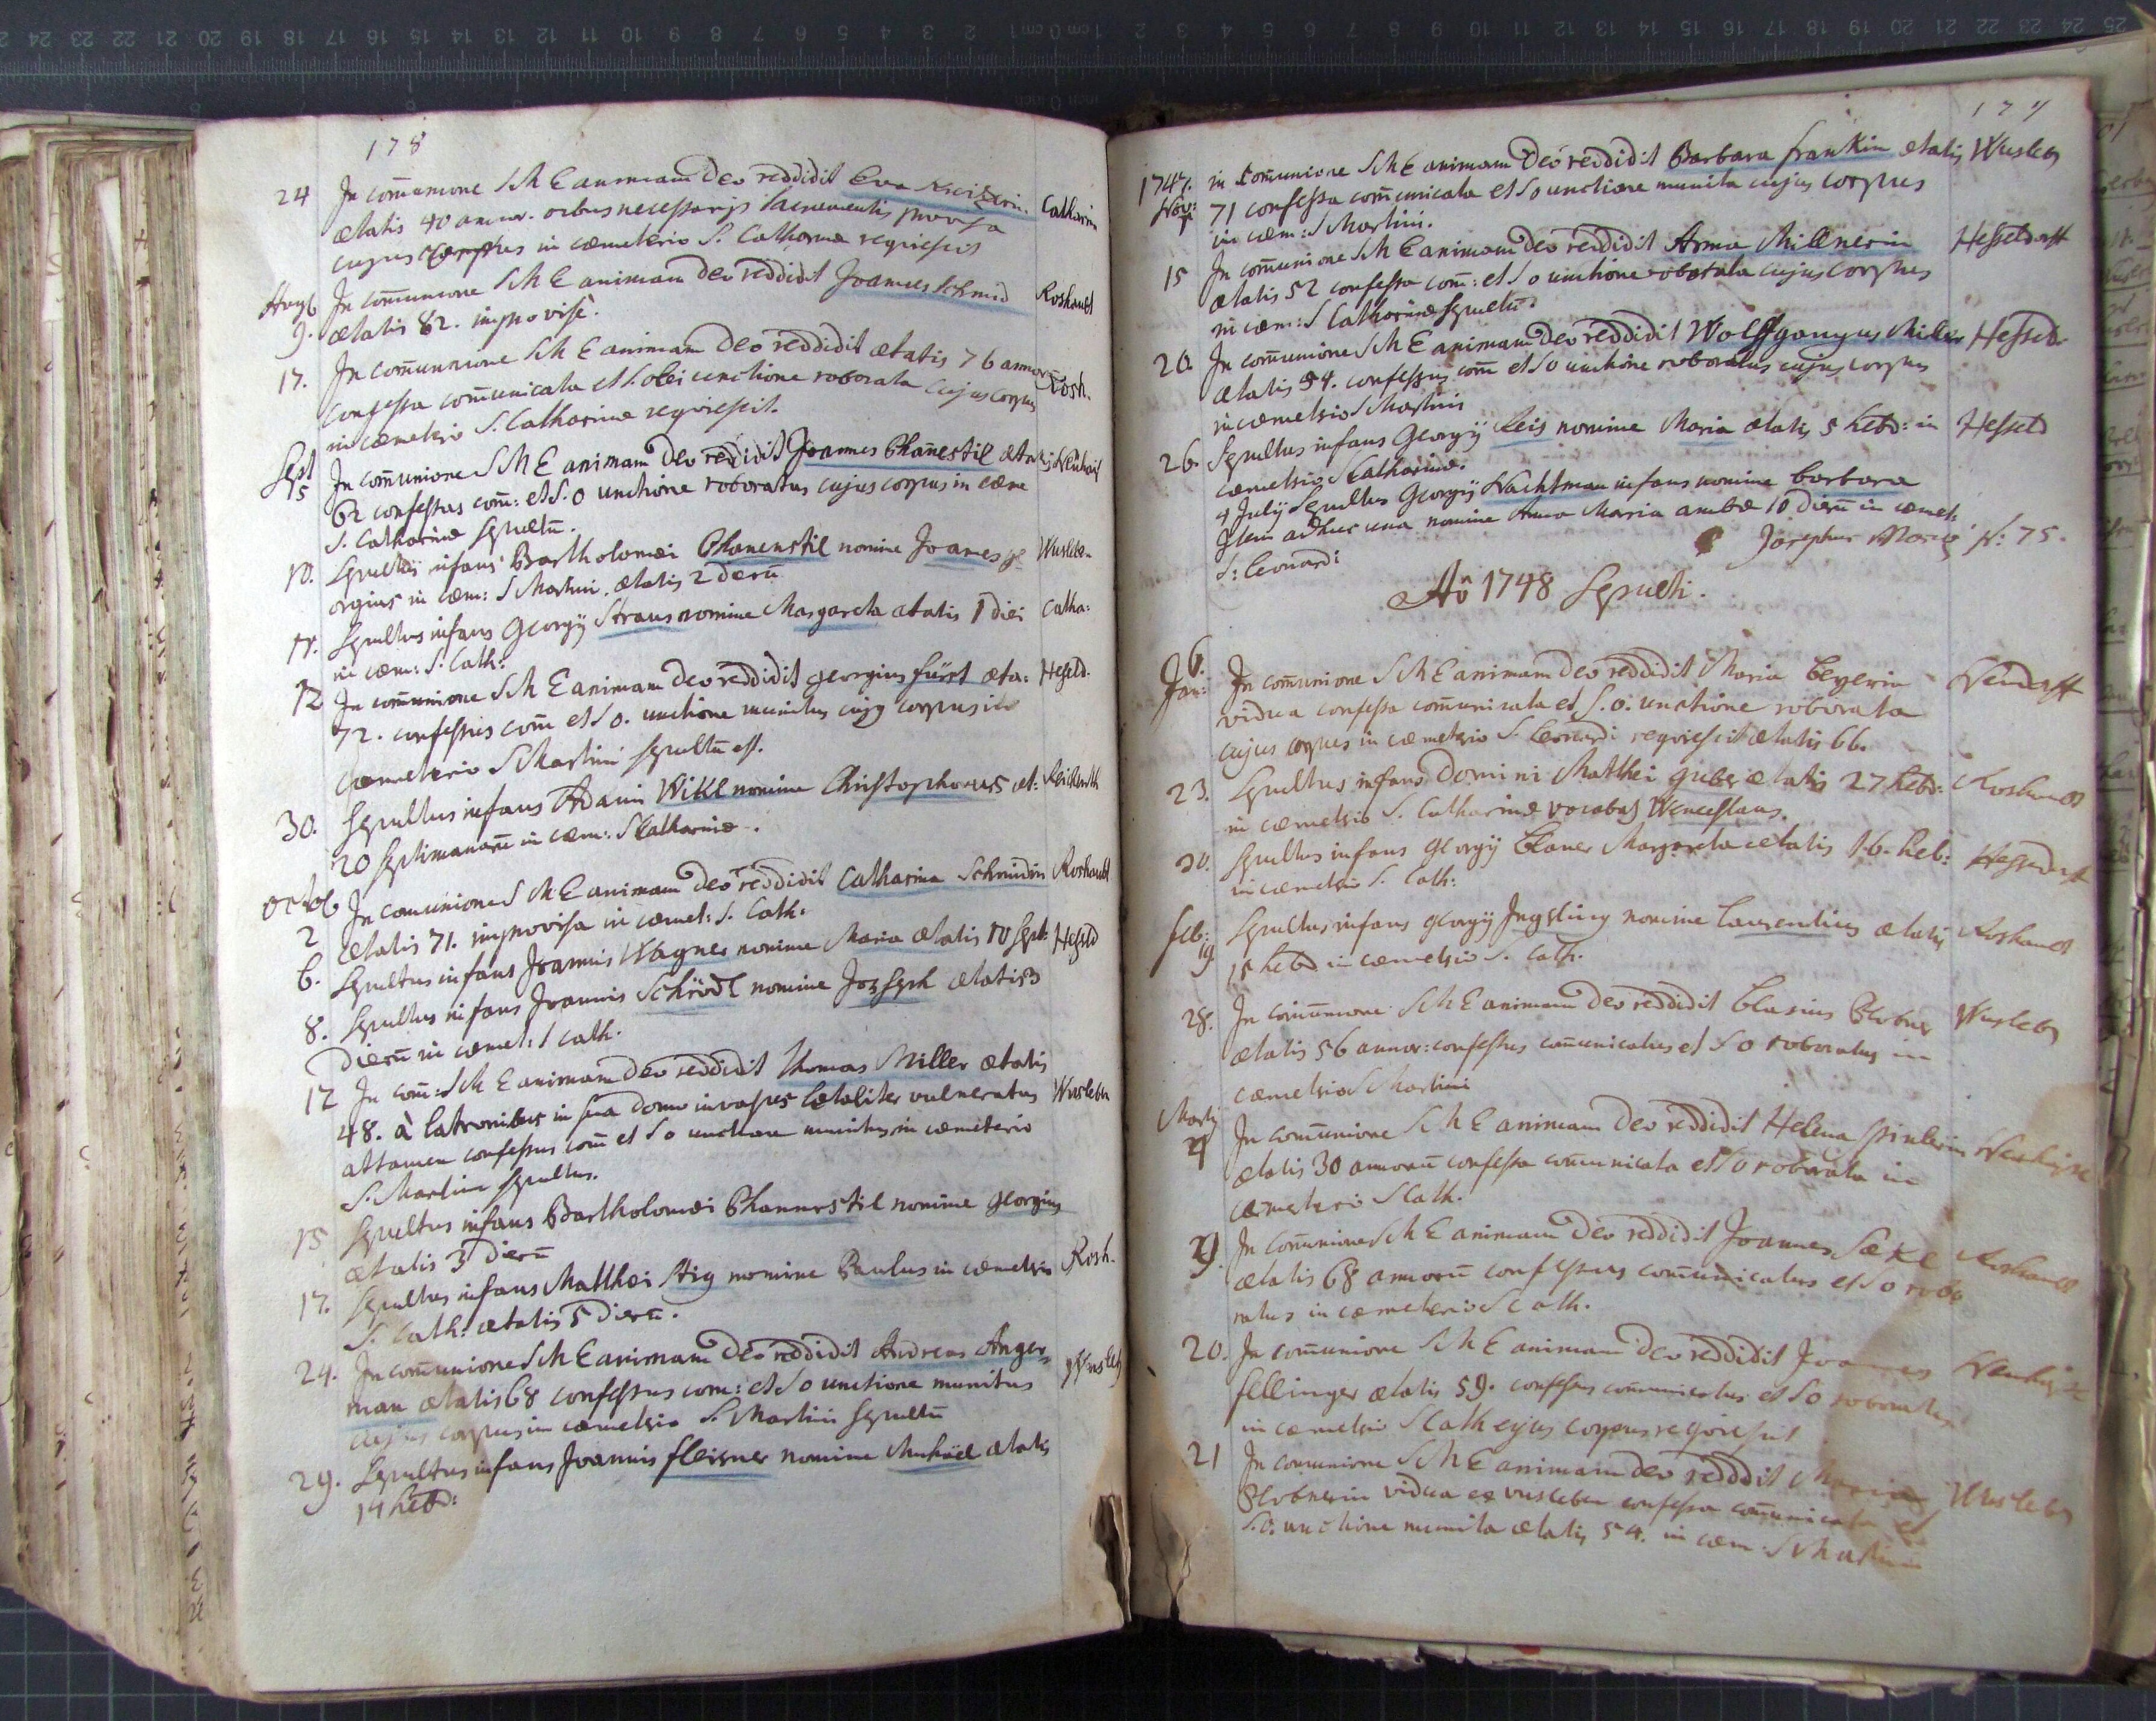 178
24 In com̄unione S M E animam Deo reddidit Eva
ætatis 40 annor. necessarijs sacramentis provisa Cathar
cujus corpus in cæmeterio S. Catharinæ requiescit
Aug In com̄unione S M E animam Deo reddidit Joannes Schmid Roshaubt
9. ætatis 82. improvise.
17. In com̄unione S M E animam Deo reddidit ætatis 76 annorū Rosh.
confessa com̄unicata et S. olei unctione roborata cujus corpus
in cæmeterio S. Catharinæ requiescit.
Sept In com̄unione S M E animam Deo reddidit Joannes Phanestil ætatis
15 62 confessus com̄: et S. O unctione roboratus cujus corpus in cæme
S. Catharinæ sepultū.
10. Sepultus infans Bartholomæi Phanenstil nomine Joannes Ge Wusleb
orgius in cæm: S Martini. ætatis 2 dierū
11. Sepultus infans Georgij Straus nomine Margareta ætatis 1 diei Catha:
in cæm: S. Cath:
12 In com̄unione S M E animam Deo reddidit georgius fürst æta: Heseld.
72. confessus com̄ et S O. unctione munitus cujus corpus in
cæmeterio S Martini sepultū est.
30. Sepultus infans Adami Wikl nomine Christophorus æt:
20 septimanarū in cæm: S Catharinæ.
octob In com̄unione S M E animam Deo reddidit Catharina Schmidin Roshaubt
2 ætatis 71. improvisa in cæmet: S. Cath:
6. Sepultus infans Joannis Wagner nomine Maria ætatis 10 sept: Heseld
8. Sepultus infans Joannis Schrödl nomine Joseph ætatis 3
dierū in cæmet: S Cath.
12 In com: S M E animam Deo reddidit Thomas Miller ætatis
48. à latronibus in sua domo invasus letaliter vulneratus Wusleben
attamen confessus com̄ et S O unctione munitus in cæmeterio
S. Martini sepultus.
15 Sepultus infans Bartholomæi Phannestil nomine georgius
ætatis 3 dierū
17. Sepultus infans Matthæi Stig nomine Paulus in cæmeterio Rosh.
S. Cath: ætatis 5 dierū.
24. In com̄unione S M E animam Deo reddidit Andreas Anger-
man ætatis 68 confessus com: et S O unctione munitus Wusleb
cujus corpus in cæmeterio S. Martini sepultū
29. Sepultus infans Joannis fleisner nomine Michäel ætatis
14 hebd:
179
1747. in Com̄unione S M E animam Deo reddidit Barbara frankin ætatis Wusleb
Nov: 71 confessa com̄unicata et S O unctione munita cujus corpus
in cæm: S Martini.
15 In com̄unione S M E animam Deo reddidit Anna Millnerin Hesseldorff
ætatis 52 confessa com̄: et S O unctione roborata cujus corpus
in cæm: S Catharinæ sepultū.
20. In com̄unione S M E animam Deo reddidit Wolffgangus Miller Hesseld
ætatis 54. confessus com̄ et S O unctione roboratus cujus corpus
in cæmeterio S Martini
26. Sepultus infans Georgij Reis nomine Maria ætatis 5 hebd: in Hesseld
cæmeterio S Catharinæ.
4 July Sepultus Georgij Nachtman infans nomine barbara
Item adhuc una nomine Anna Maria ambæ 10 dierū in cæmet
S: leonardi Josephus N: 75.
Aō 1748 Sepulti.
Jan: 6. In com̄unione S M E animam Deo reddidit Maria beyerin Neudorff
vidua confessa com̄unicata et S. O: unctione roborata
cujus corpus in cæmeterio S. leonardi requiescit ætatis 66.
23. Sepultus infans Domini Matthei ætatis 27 hebd: Roshaubt
in cæmeterio S. Catharinæ vocabat Wenceslaus.
30. Sepultus infans georgij blauer Margareta ætatis 16. heb: Hesseldorff
in cæmeterio S. Cath:
feb: Sepultus infans georgij Ingsling nomine laurentius ætatis Roshaubt
19 15 hebd in cæmeterio S. Cath.
28. In com̄unione S M E animam Deo reddidit blasius Plobner Wusleb
ætatis 56 annor: confessus com̄unicatus et S O roboratus in
cæmeterio S Martini
Martij In com̄unione S M E animam Deo reddidit Helena
4 ætatis 30 annorū confessa com̄unicata et S O roborata in
cæmeterio S Cath.
19. In com̄unione S M E animam Deo reddidit Joannes Sækl Roshaubt
ætatis 68 annorū confessus com̄unicatus et S O robo
ratus in cæmeterio S Cath.
20. In com̄unione S M E animam Deo reddidit Joannes
fellinger ætatis 59. confessus com̄unicatus et S O roboratus
in cæmeterio S Cath cujus corpus requiescit
21 In com̄unione S M E animam Deo reddidit Maria Wusleb
Plobnerin vidua ex wusleben confessa com̄unicata et
S. O: unctione munita ætatis 54. in cæm: S Martini